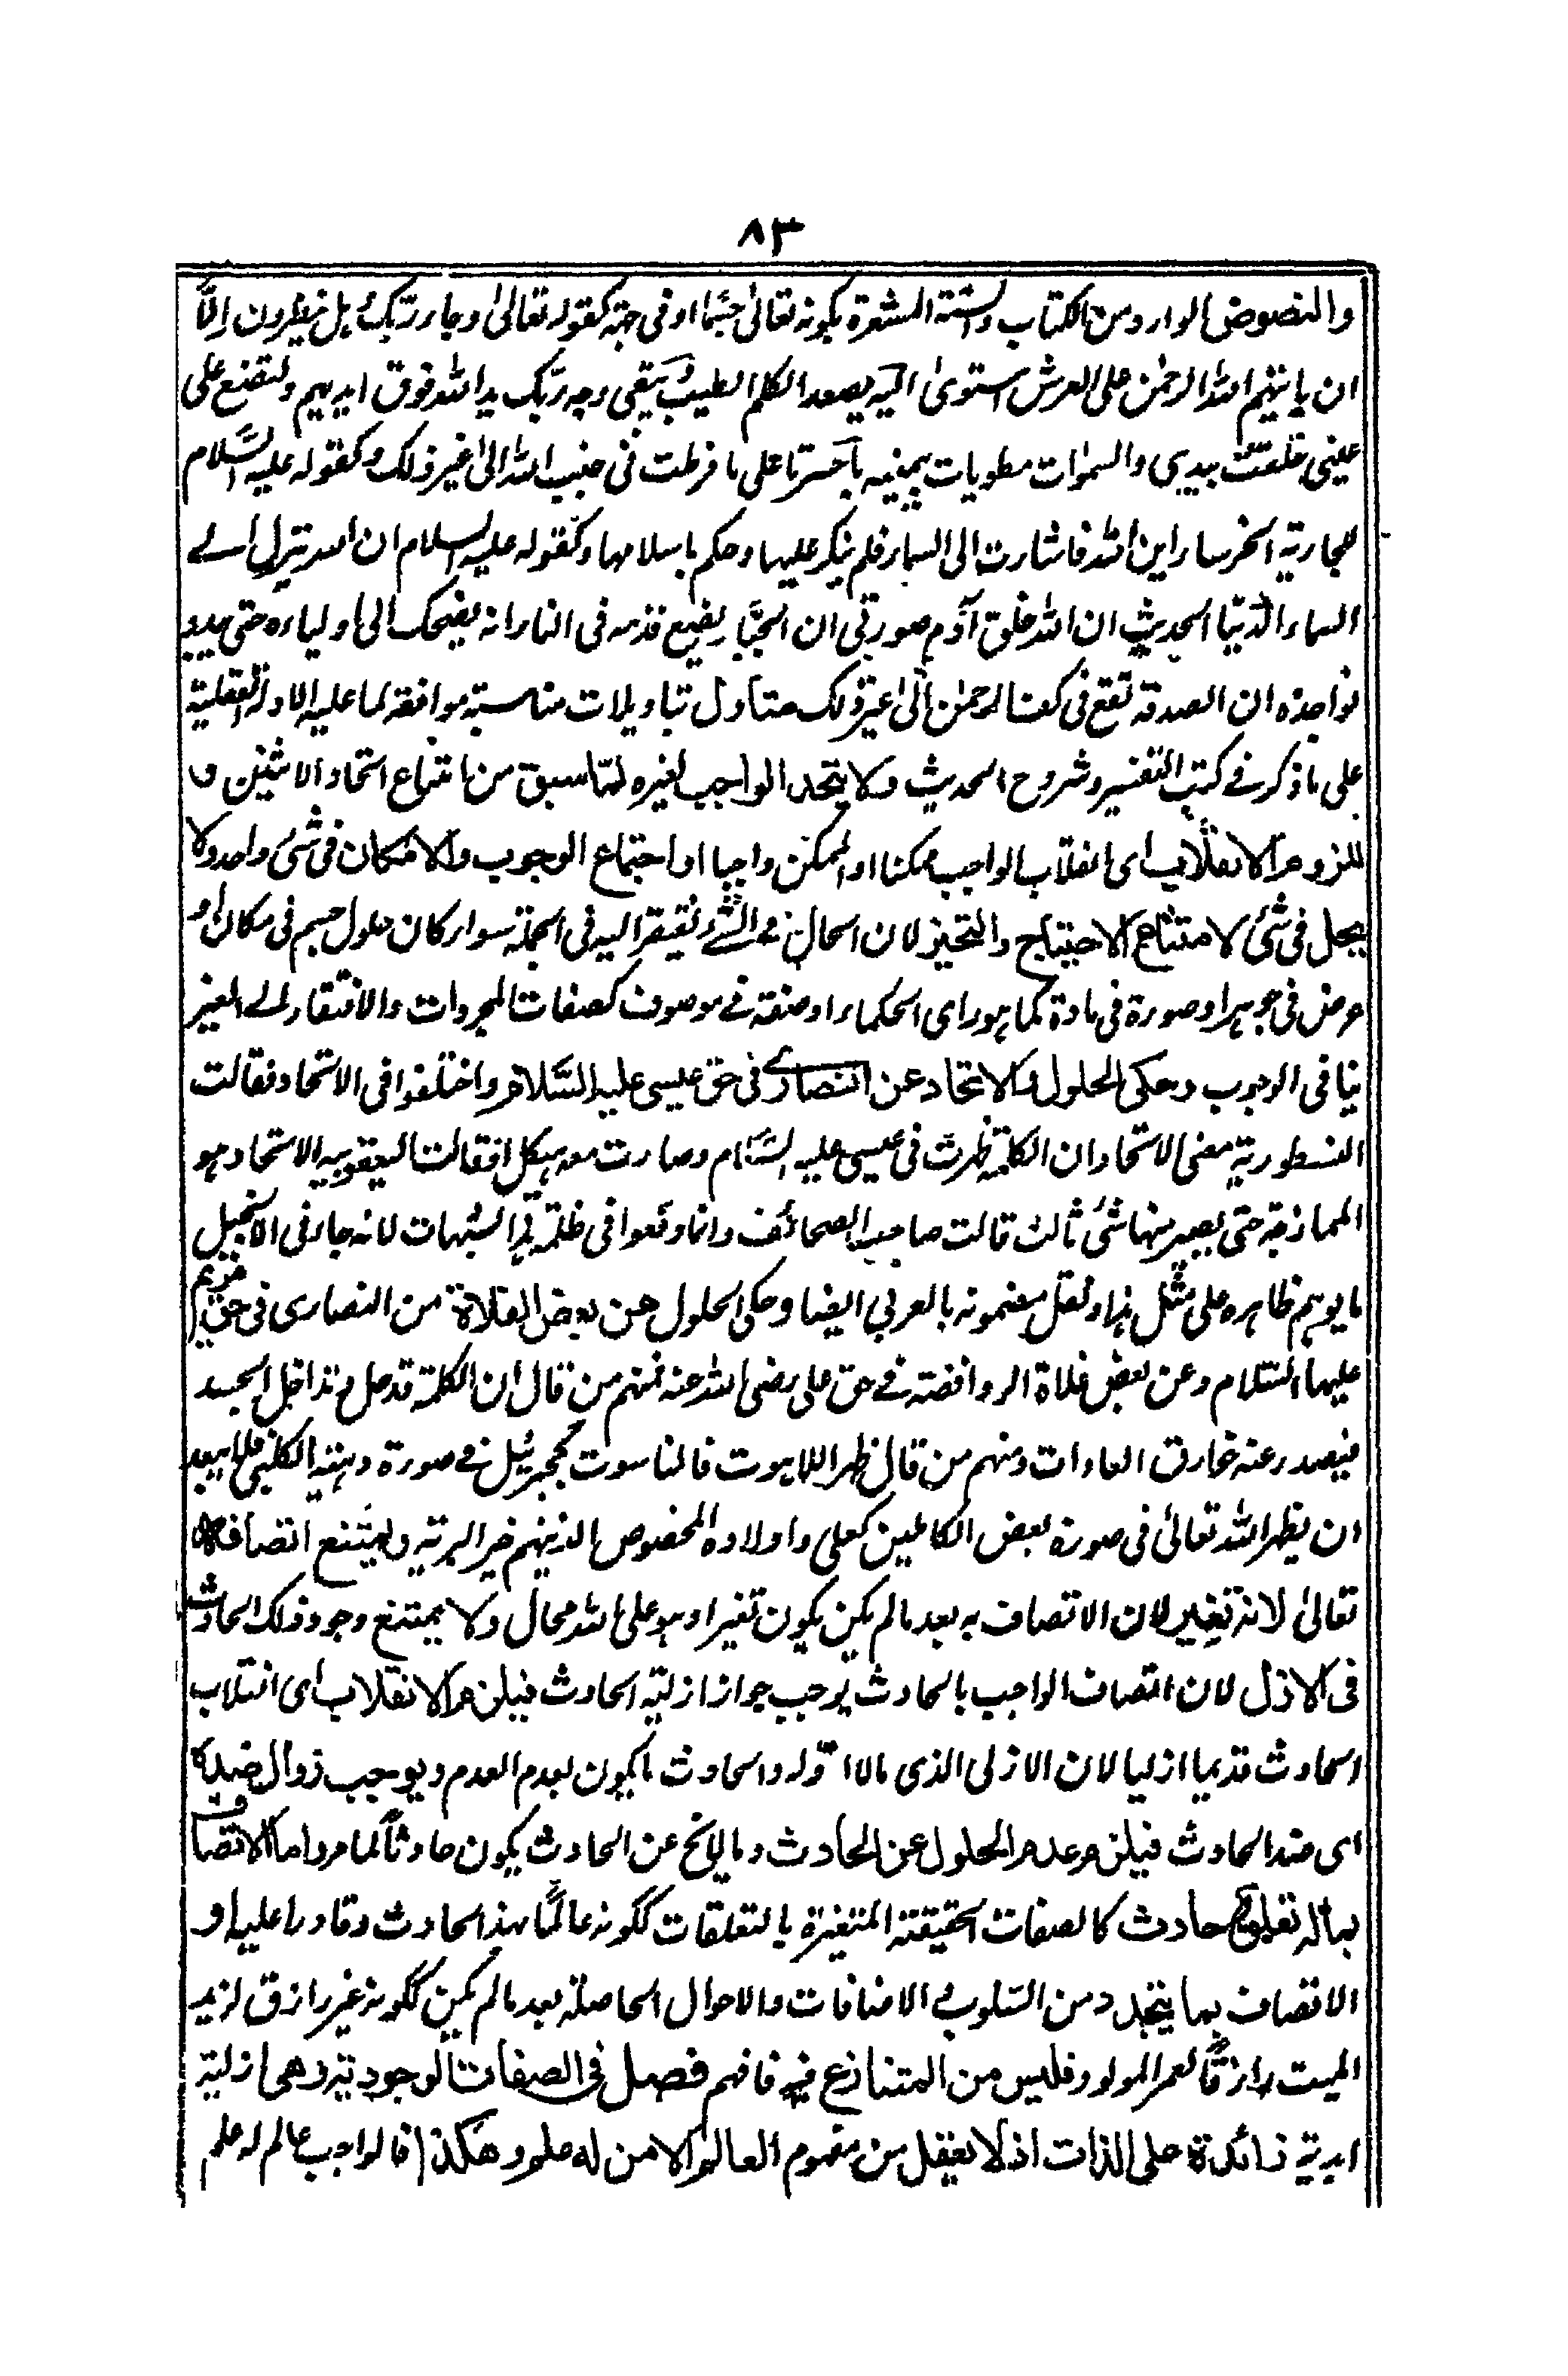 ٨٣
والنصوص الواردة من الكتاب والسنة المشعرة بكونه تعالىٰ جسما او فى جهة كقوله تعالىٰ وجاء ربك هل ينظرون الّا
ان ياتيهم الله الرحمٰن على العرش استوىٰ اليه يصعد الكلم الطيب يبقى وجه ربك يد الله فوق ايديهم ولتصنع على
عينى خلقت بيدى والسموات مطويات بيمينه يا حسرتا على ما فرطت فى جنب الله الىٰ غير ذلك وكقوله عليه السلام
للجارية الخرساء اين الله فاشارت الى السماء فلم ينكر عليها وحكم باسلامها وكقوله عليه السلام ان الله ينزل الے
السماء الدنيا الحديث ان الله خلق آدم صورتى ان الجبار يضع قدمه فى النار انه يضحك الى اولياءه حتى يبدو
نواجذه ان الصدقة تقع فى كف الرحمٰن الىٰ غير ذلك متاول بتاويلات مناسبة موافقة لما عليه الادلة العقلية
على ما ذكر فے كتب التفسير وشروح الحديث ولا يتحد الواجب لغيره لما سبق من امتناع اتحاد الاثنين و
للزوم الانقلاب اى انقلاب الواجب ممكنا او الممكن واجبا او اجتماع الوجوب والامكان فى شئ واحد ولا
يحل فى شئ لامتناع الاحتياج والتحيز لان الحال فے الشئ يفتقر اليه فى الجملة سواء كان حلول جسم فى مكان او
عرض فى جوهر او صورة فى مادة كما هو راى الحكماء او صفة فے موصوف كصفات المجردات والافتقار الے الغير
ينافى الوجوب وحكى الحلول والاتحاد عن النصارے فى حق عيسى عليه السلام واختلفوا فى الاتحاد فقالت
النسطورية معنى الاتحاد ان الكلمة ظهرت فى عيسى عليه السلام وصارت معه هيكلا فقالت اليعقوبيه الاتحاد هو
الممازجة حتى يصير منها شئ ثالث قالت صاحب الصحائف وانما وقعوا فى ظلمة هذه الشبهات لانه جاء فى الانجيل
ما يوهم ظاهره على مثل هذا ونقل مضمونه بالعربى ايضا وحكى الحلول عن بعض الغلاة من النصارى فى حق مريم
عليها السلام وعن بعض غلاة الروافضة فے حق على رضى الله عنه فمنهم من قال ان الكلمة قد حل وتداخل الجسد
فيصدر عنه خارق العادات ومنهم من قال ظهر اللاهوت فالناسوت كجبرئيل فے صورة دحية الكلبى فلا يبعد
ان يظهر الله تعالىٰ فى صورة بعض الكاملين كعلى واولاده المخصوص الذينهم خير البرية ويمتنع اتصافه
تعالىٰ لانه تغير لان الاتصاف به بعد ما لم يكن يكون تغيرا وهو على الله محال ولا يمتنع وجود ذلك الحادث
فى الازل لان اتصاف الواجب بالحادث يوجب جواز ازلية الحادث فيلزم الانقلاب اى انقلاب
الحادث قديما ازليا لان الازلى الذى مالا اوّل له والحادث ما يكون بعدم العدم ويوجب زوال ضده
اى ضد الحادث فيلزم عدم الحلول عن الحادث وما لايخ عن الحادث يكون حادثاً كما مر واما الاتصاف
بماله تعلق حادث كالصفات الحقيقة المتغيرة بالتعلقات ككونه عالمًا بهذا الحادث وقادرا عليه او
الاتصاف بما يتجدد من السلوب و الاضافات والاحوال الحاصلة بعد ما لم يكن ككونه غير رازق لزيد
الميت رازقًا لعمر المولود فليس من المتنازع فيه فافهم فصل فى الصفات الوجودية وهى ازلية
ابدية زائدة على الذات اذ لا يعقل من مفهوم العالم الا من له علم وهكذا فالواجب عالم له علم